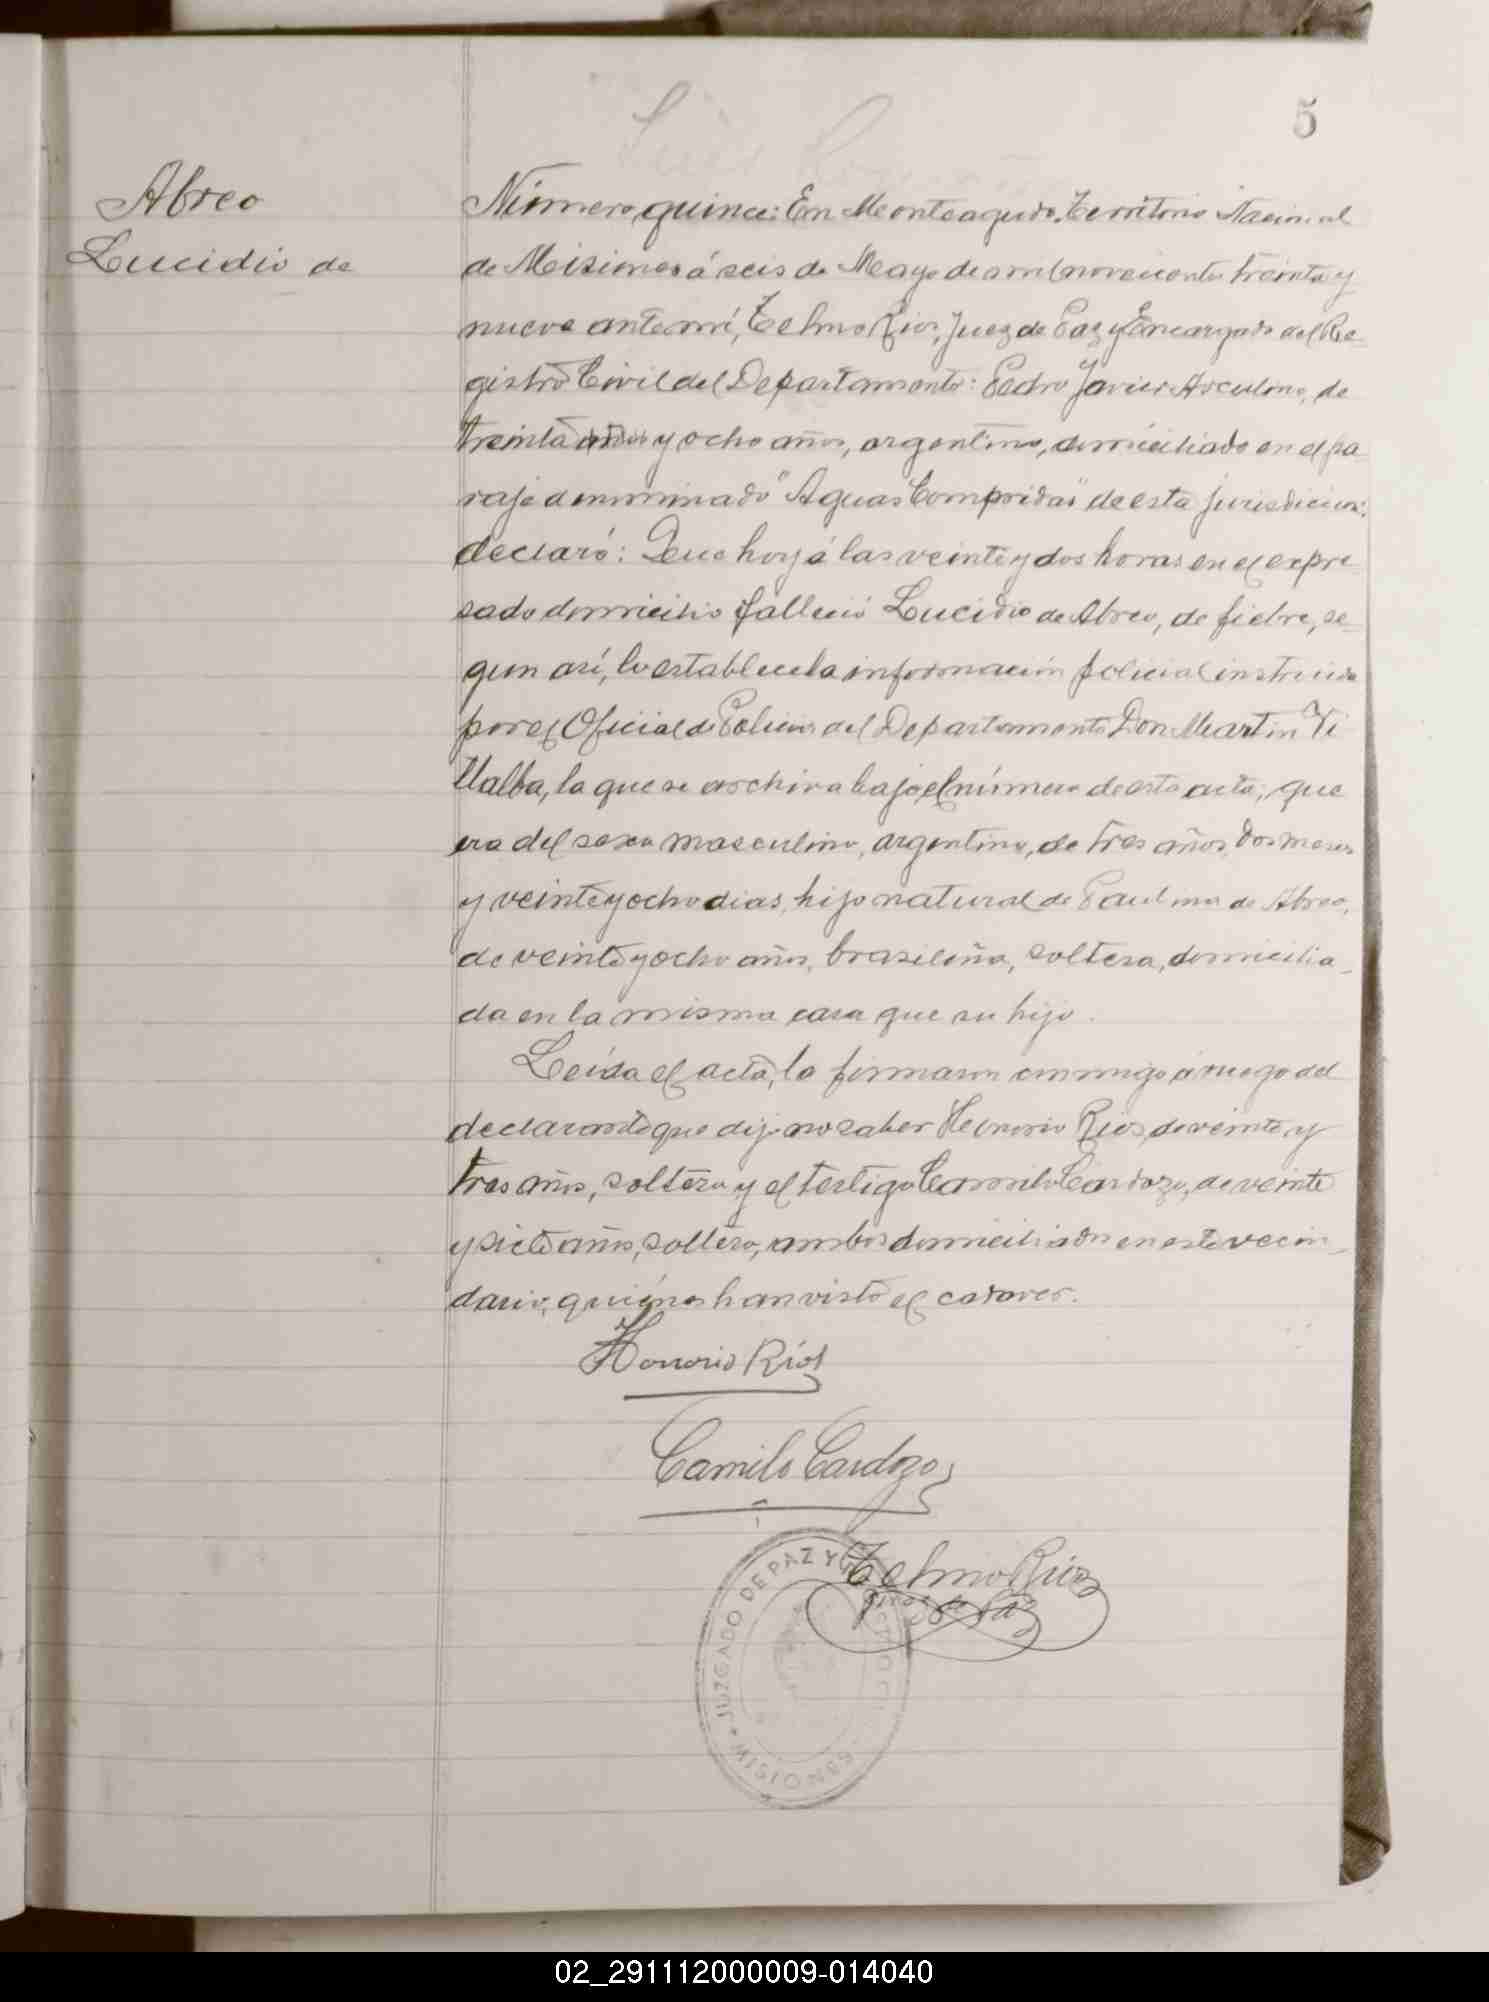 5
Abreo
Lucidio de
Número quince: En Monteagudo, Territorio Nacional
de Misiones á seis de Mayo de mil novecientos treinta y
nueve ante mí, Telmo Rios, Juez de Paz y Encargado del Re-
gistro Civil del Departamento: Pedro Javier, de
treinta y ocho años, argentino, domiciliado en el pa-
raje denominado "Aguas Compridas" de esta jurisdicion:
declaró: Que hoy á las veinte y dos horas en el expre-
sado domicilio falleció Lucidio de Abreo, de fiebre, se-
gun así, lo establece la información policial instruida
por el Oficial de Policia del Departamento Don Martin Vi
llalba, la que se archiva bajo el número de esta acta; que
era del sexo masculino, argentino, de tres años, dos meses
y veinte y ocho dias, hijo natural de Paulina de Abreo,
de veinte y ocho años, brasileña, soltera, domicilia-
da en la misma casa que su hijo.
Leída el acta, la firmaron conmigo á ruego del
declarante que dijo no saber Honorio Rios, de veinte y
tres años, soltero y el testigo Camilo Cardozo, de veinte
y siete años, soltero, ambos domiciliados en este vecin-
dario, quiénes han visto el cadaver.
Honorio Ríos
Camilo Cardozo
Telmo Rios
Juez de Paz
JUZGADO DE PAZ Y
MISIONES
02_291112000009-014040